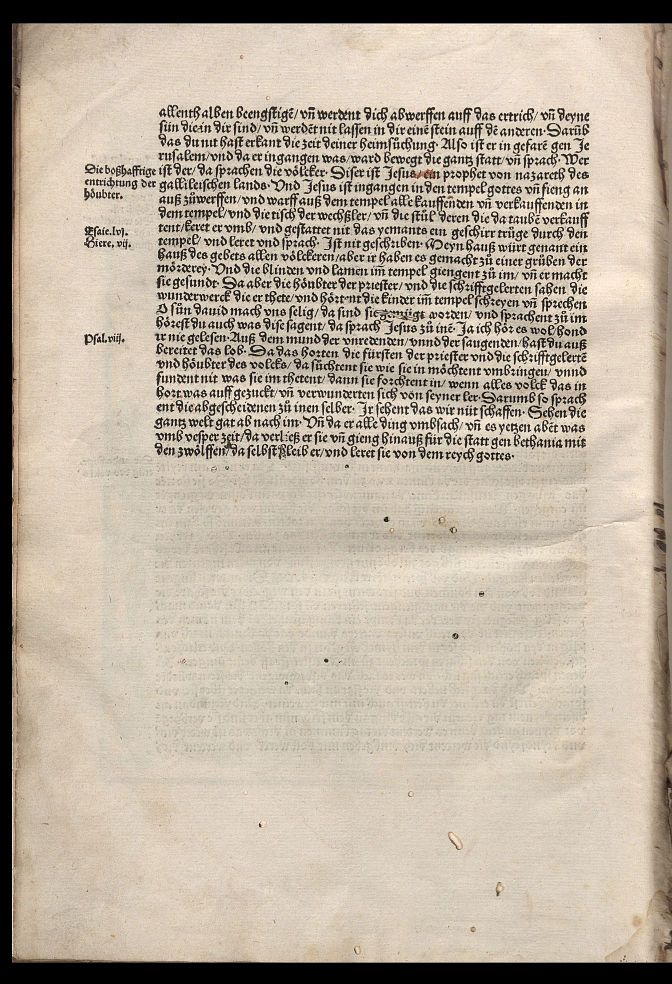 allenthalben beengstigē/ vñ werdent dich abwerffen auff das ertrich/ vñ deyne
sün die in dir sind/ vñ werdēt nit lassen in dir einē stein auff dē anderen. Darūb
das du nit hast erkant die zeit deiner heimsůchung. Also ist er in gefarē gen Je
rusalem/ vnd da er ingangen was/ ward bewegt die gantz statt/ vñ sprach. Wer
ist der/ da sprachen die völcker. Diser ist Jesus/ ein prophet von nazareth des
gallileischen lands. Vnd Jesus ist ingangen in den tempel gottes vñ fieng an
auß zůwerffen/ vnd warff auß dem tempel alle kauffenden vñ verkauffenden in
dem tempel/ vnd die tisch der wechßler/ vñ die stül deren die da taubē verkauff
tent/ keret er vmb/ vnd gestattet nit das yemants ein geschirr trüge durch den
tempel/ vnd leret vnd sprach. Ist nit geschriben. Meyn hauß würt genant ein
hauß des gebets allen völckeren/ aber ir haben es gemacht zů einer grüben der
mörderey. Vnd die blinden vnd lamen im̄ tempel giengent zů im/ vñ er macht
sie gesundt. Da aber die höubter der priester/ vnd die schrifftgelerten sahen die
wunderwerck die er thete/ vnd hörtent die kinder im̄ tempel schreyen vñ sprechen
O sůn dauid mach vns selig/ da sind sie worden/ vnd sprachent zů im
hörest du auch was dise sagent/ da sprach Jesus zů inē. Ja ich hör es wol hond
ir nie gelesen. Auß dem mund der vnredenden/ vnnd der saugenden/ hast du auß
bereitet das lob. Da das horten die fürsten der priester vnd die schrifftgelertē
vnd höubter des volcks/ da sůchtent sie wie sie in möchtent vmbringen/ vnnd
fundent nit was sie im thetent/ dann sie forchtent in/ wenn alles volck das in
hort was auff gezuckt/ vñ verwunderten sich von seyner ler. Darumb so sprach
ent die abgescheidenen zů inen selber. Ir sehent das wir nüt schaffen. Sehen die
gantz welt gat ab nach im. Vñ da er alle ding vmbsach/ vñ es yetzen abēt was
vmb vesper zeit/ da verließ er sie vñ gieng hinauß für die statt gen bethania mit
den zwölffen/ da selbst bleib er/ vnd leret sie von dem reych gottes.
Die boßhafftige
entrichtung der
höubter.
Esaie. lvj.
Hiere. vij.
Psal. viij.